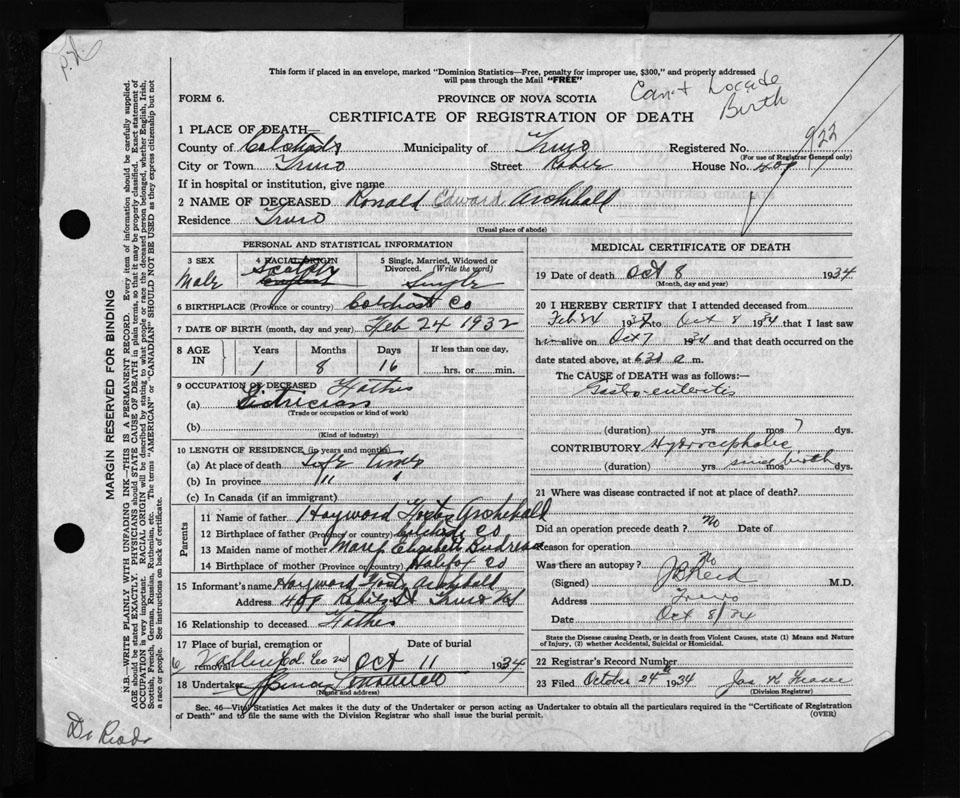 This form if placed in an envelope, marked "Dominion Statistics—Free, penalty for improper use, $300," and properly addressed
will pass through the Mail "FREE"
FORM 6.
PROVINCE OF NOVA SCOTIA
Can't Locate
Birth
CERTIFICATE OF REGISTRATION OF DEATH
1 PLACE OF DEATH—
County of Colchester Municipality of Truro Registered No. 922
(For use of Registrar General only)
City or Town Truro Street House No. 409
If in hospital or institution, give name
2 NAME OF DECEASED Ronald Edward Archibald
Residence Truro
(Usual place of abode)
PERSONAL AND STATISTICAL INFORMATION
3 SEX 4 RACIAL ORIGIN 5 Single, Married, Widowed or
Divorced. (Write the word)
Male Scotch English Single
6 BIRTHPLACE (Province or country) Colchester Co
7 DATE OF BIRTH (month, day and year) Feb 24 1932
8 AGE IN Years Months Days If less than one day,
1 8 16 hrs. or min.
9 OCCUPATION OF DECEASED Father
(a) Electrician
(Trade or occupation or kind of work)
(b)
(Kind of industry)
10 LENGTH OF RESIDENCE (in years and months)
(a) At place of death Life time
(b) In province " "
(c) In Canada (if an immigrant)
Parents
11 Name of father Haywood Foster Archibald
12 Birthplace of father (Province or country) Colchester Co
13 Maiden name of mother Mary Elizabeth
14 Birthplace of mother (Province or country) Halifax Co
15 Informant's name Haywood Foster Archibald
Address 409 St Truro NS
16 Relationship to deceased Father
17 Place of burial, cremation or removal Date of burial
Oct 11 1934
18 Undertaker
(Name and address)
MEDICAL CERTIFICATE OF DEATH
19 Date of death Oct 8 1934
(Month, day and year)
20 I HEREBY CERTIFY that I attended deceased from
Feb 24 1932 to Oct 8 1934 that I last saw
him alive on Oct 7 1934 and that death occurred on the
date stated above, at 630 a m.
The CAUSE of DEATH was as follows:—
Gastroenteritis
(duration) yrs mos 7 dys.
CONTRIBUTORY Hydrocephalic
(duration) yrs since birth mos dys.
21 Where was disease contracted if not at place of death?
Did an operation precede death? no Date of
Reason for operation
Was there an autopsy? No
(Signed) J B Reid M.D.
Address Truro
Date Oct 8/34
State the Disease causing Death, or in death from Violent Causes, state (1) Means and Nature
of Injury, (2) whether Accidental, Suicidal or Homicidal.
22 Registrar's Record Number
23 Filed October 24th 1934 Jas
(Division Registrar)
Sec. 46—Vital Statistics Act makes it the duty of the Undertaker or person acting as Undertaker to obtain all the particulars required in the "Certificate of Registration
of Death" and to file the same with the Division Registrar who shall issue the burial permit.
(OVER)
MARGIN RESERVED FOR BINDING
N.B.—WRITE PLAINLY WITH UNFADING INK—THIS IS A PERMANENT RECORD. Every item of information should be carefully supplied.
AGE should be stated EXACTLY. PHYSICIANS should STATE CAUSE OF DEATH in plain terms, so that it may be properly classified. Exact statement of
OCCUPATION is very important. RACIAL ORIGIN will be described by stating to what people or race the deceased person belonged, whether English, Irish,
Scottish, French, German, Russian, Ruthenian, etc. The terms "AMERICAN" or "CANADIAN" SHOULD NOT BE USED as they express citizenship but not
a race or people. See instructions on back of certificate.